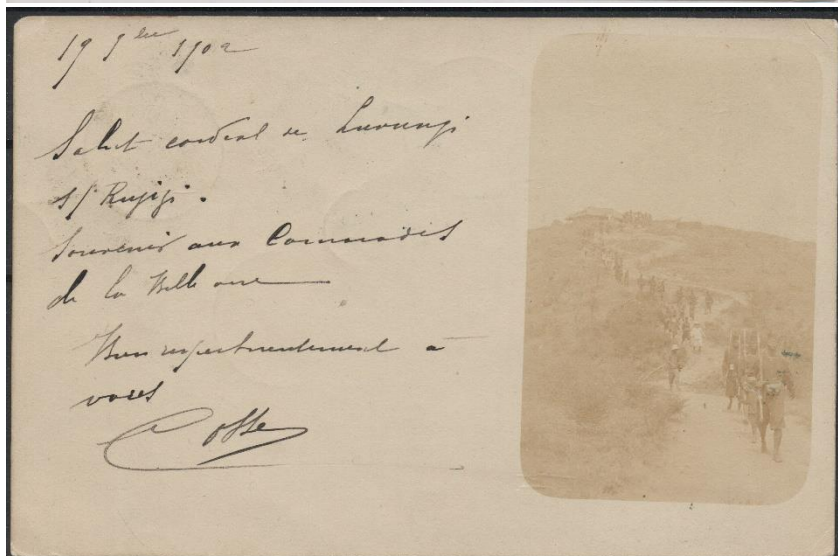 19 9bre 1902
Salut cordial de Luvungi
s/ Rusizi.
Souvenir aux Camarades
de la
Bien respectueusement à
vous